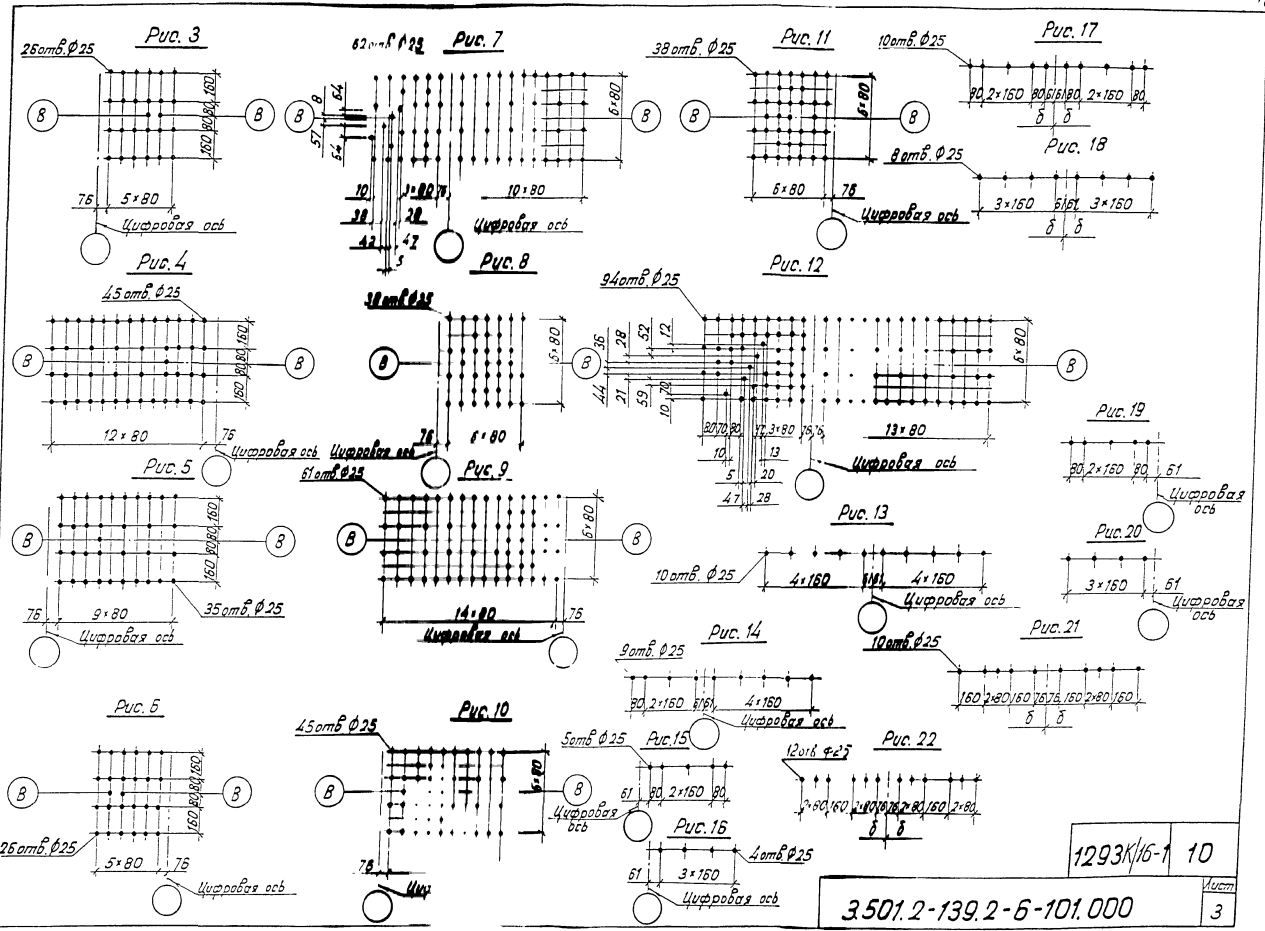 Рис. 3
26 отв. Ф25
В
В
160
80
80
160
76
5×80
Цифровая ось
Рис. 4
45 отв. Ф25
В
В
160
80
80
160
12×80
76
Цифровая ось
Рис. 5
В
В
160
80
80
160
35 отв. Ф25
76
9×80
Цифровая ось
Рис. 6
В
В
160
80
80
160
26 отв. Ф25
5×80
76
Цифровая ось
Рис. 7
62 отв Ф25
В
В
8
64
57
64
6×80
10
3×80
76
10×80
38
28
Цифровая ось
42
47
Рис. 8
38 отв Ф25
В
В
6×80
76
6×80
Цифровая ось
Рис. 9
61 отв. Ф25
В
В
6×80
14×80
76
Цифровая ось
Рис. 10
45 отв Ф25
В
В
6×80
76
Рис. 11
38 отв. Ф25
В
В
6×80
6×80
76
Цифровая ось
Рис. 12
94 отв. Ф25
В
36
28
52
12
44
21
59
70
10
6×80
80
70
80
17
3×80
76
76
13×80
10
13
5
20
47
28
Цифровая ось
Рис. 13
10 отв. Ф25
4×160
61
61
4×160
Цифровая ось
Рис. 14
9 отв. Ф25
80
2×160
61
61
4×160
Цифровая ось
Рис. 15
5 отв Ф25
61
80
2×160
80
Цифровая
ось
Рис. 16
4 отв. Ф25
61
3×160
Цифровая ось
Рис. 17
10 отв. Ф25
80
2×160
80
61
61
80
2×160
80
б
б
Рис. 18
8 отв. Ф25
3×160
61
61
3×160
б
б
Рис. 19
80
2×160
80
61
Цифровая
ось
Рис. 20
3×160
61
Цифровая
ось
Рис. 21
10 отв. Ф25
160
2×80
160
76
76
160
2×80
160
б
б
Рис. 22
12 отв Ф25
2×80
160
2×80
76
76
2×80
160
2×80
б
б
1293К/16-1
10
3.501.2-139.2-6-101.000
Лист
3